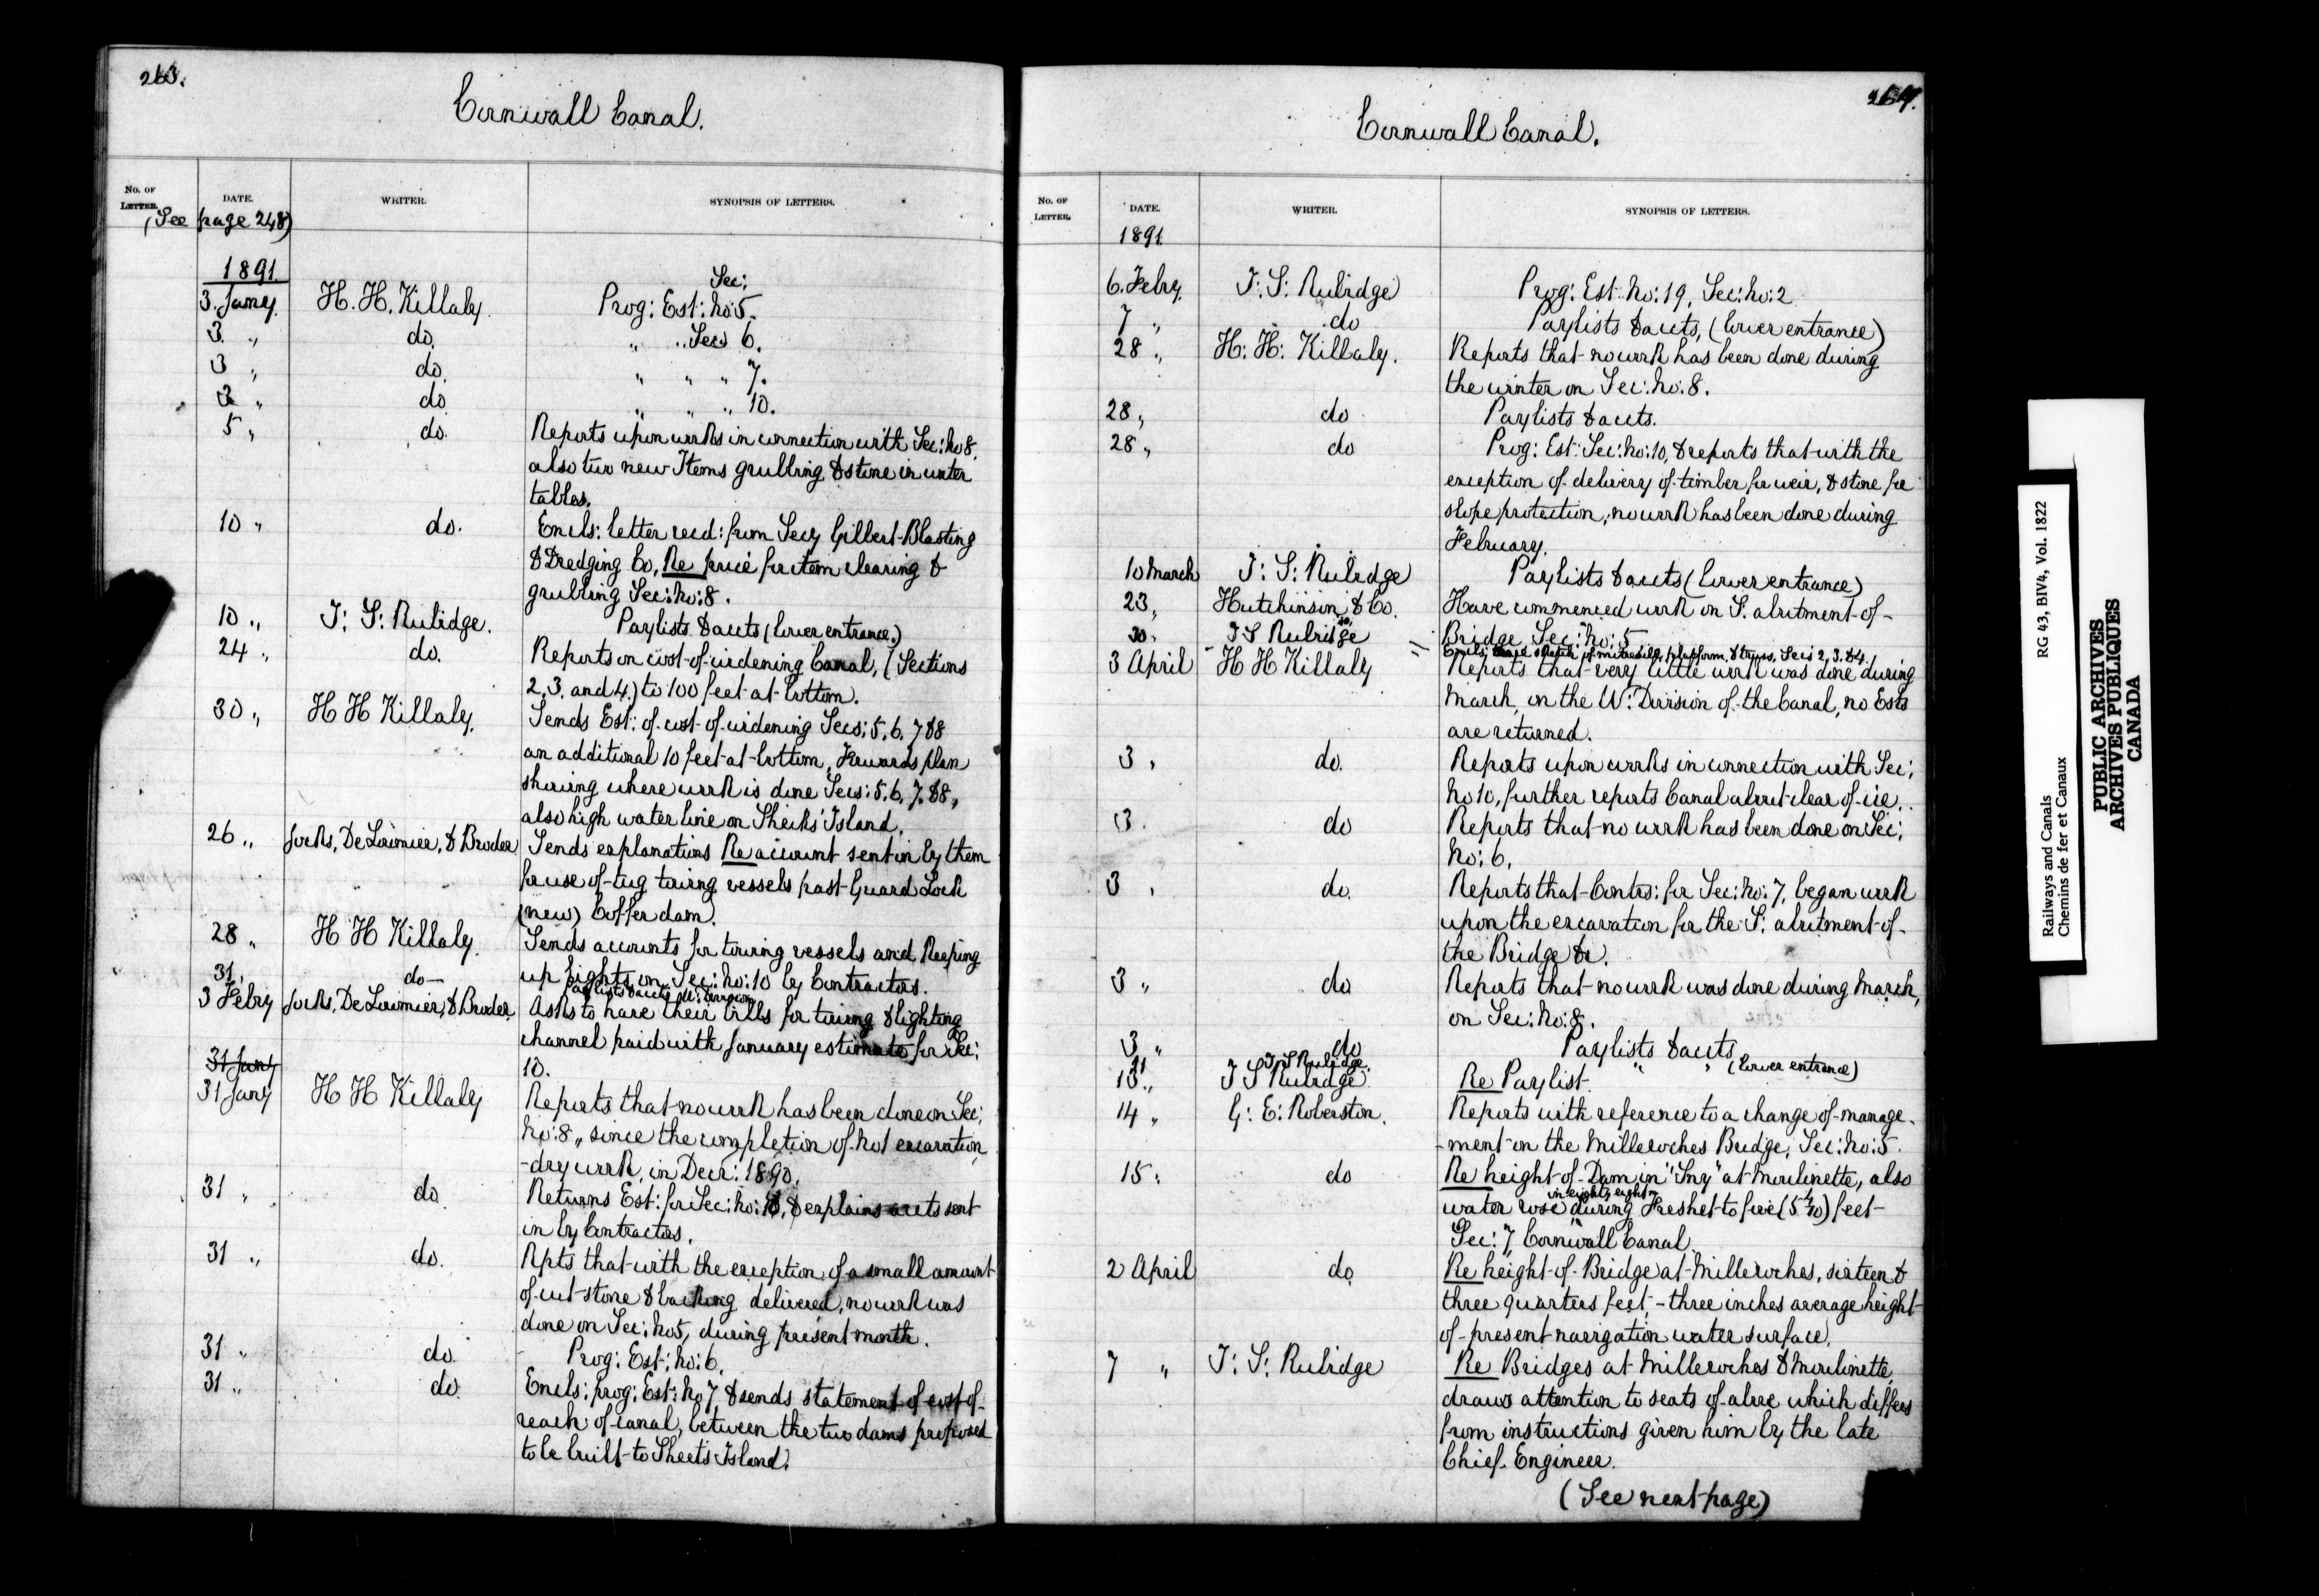 263.
Cornwall Canal.
No. OF LETTER. DATE. WRITER. SYNOPSIS OF LETTERS.
(See page 248)
1891.
Sec:
3. Jany. H. H. Killaly. Prog: Est: No: 5.
3 " do. " " Sec: 6.
3 " do. " " " 7.
3 " do " " " 10.
5 " do. Reports upon works in connection with Sec: No 8,
also two new Items grubbing & stone in water
tables.
10 " do. Encls: letter recd: from Secy Gilbert Blasting
& Dredging Co, Re price for item clearing &
grubbing Sec: No: 8.
10 " T: S: Rubidge. Paylists & accts (lower entrance.)
24 " do. Reports on cost of widening Canal, (Sections
2, 3, and 4.) to 100 feet at bottom.
30 " H H Killaly. Sends Est: of cost of widening Secs: 5, 6, 7 & 8
an additional 10 feet at bottom, Forwards plan
showing where work is done Secs: 5, 6, 7, & 8,
also high water line on Sheiks' Island.
26 " Jocks, De Lorimier, & Broder. Sends explanations Re account sent in by them
for use of tug towing vessels past Guard Lock
(new) Coffer dam.
28 " H H Killaly. Sends accounts for towing vessels and keeping
up lights on Sec: No: 10 by Contractors.
31, do — Paylists & accts W: Division
3 Febry Jocks, De Lorimier, & Broder. Asks to have their bills for towing & lighting
channel paid with January estimate for Sec:
10.
31 Jany
31 Jany H H Killaly Reports that no work has been done on Sec:
No: 8, since the completion of No 1 excavation,
-dry work, in Decr: 1890.
31 " do. Returns Est: for Sec: No: 10, & explains accts sent
in by Contractors.
31 " do. Rpts that with the exception of a small amount
of cut stone & backing delivered, no work was
done on Sec: No 5, during present month.
31 " do. Prog: Est: No: 6.
31 " do. Encls: prog: Est: No 7 & sends statement of cost of
reach of canal, between the two dams proposed
to be built to Sheets Island.
264.
Cornwall Canal.
No. OF LETTER. DATE. WRITER. SYNOPSIS OF LETTERS.
1891.
6. Febry. T: S: Rubidge Prog: Est: No: 19, Sec: No: 2
7 " do Paylists & accts, (lower entrance)
28 " H: H: Killaly. Reports that no work has been done during
the winter on Sec: No: 8.
28 " do Paylists & accts.
28 " do Prog: Est: Sec: No: 10, & reports that with the
exception of delivery of timber for weir, & stone for
slope protection, no work has been done during
February.
10 March T: S: Rubidge Paylists & accts (lower entrance)
23, Hutchinson & Co. Have commenced work on S. abutment of
Bridge Sec: No: 5
30. T S Rubidge Encls: sketch of mitresill, platform, & truss, Secs 2, 3, & 4.
3 April H H Killaly Reports that very little work was done during
March, on the W: Division of the Canal, no Ests
are returned.
3 " do. Reports upon works in connection with Sec:
No 10, further reports Canal about clear of ice.
3. do Reports that no work has been done on Sec:
No: 6.
3 " do. Reports that Contrs: for Sec: No: 7, began work
upon the excavation for the S: abutment of
the Bridge &c.
3 " do Reports that no work was done during March,
on Sec: No: 8.
3 " do Paylists & accts
11 T S Rubidge. " " (lower entrance)
13 " T S Rubidge Re Paylist.
14 " G: E: Roberston. Reports with reference to a change of manage-
-ment on the Milleroches Bridge, Sec: No: 5.
15 " do Re height of Dam in "Sny" at Moulinette, also
water rose in eighty eight during Freshet to five (5 4/10) feet
Sec: 7, Cornwall Canal.
2 April do Re height of Bridge at Milleroches, sixteen &
three quarters feet, - three inches average height
of present navigation water surface.
7 " T: S: Rubidge Re Bridges at Milleroches & Moulinette,
draws attention to seats of above which differs
from instructions given him by the late
Chief Engineer.
(See next page)
Railways and Canals
Chemins de fer et Canaux
RG 43, BIV4, Vol. 1822
PUBLIC ARCHIVES
ARCHIVES PUBLIQUES
CANADA